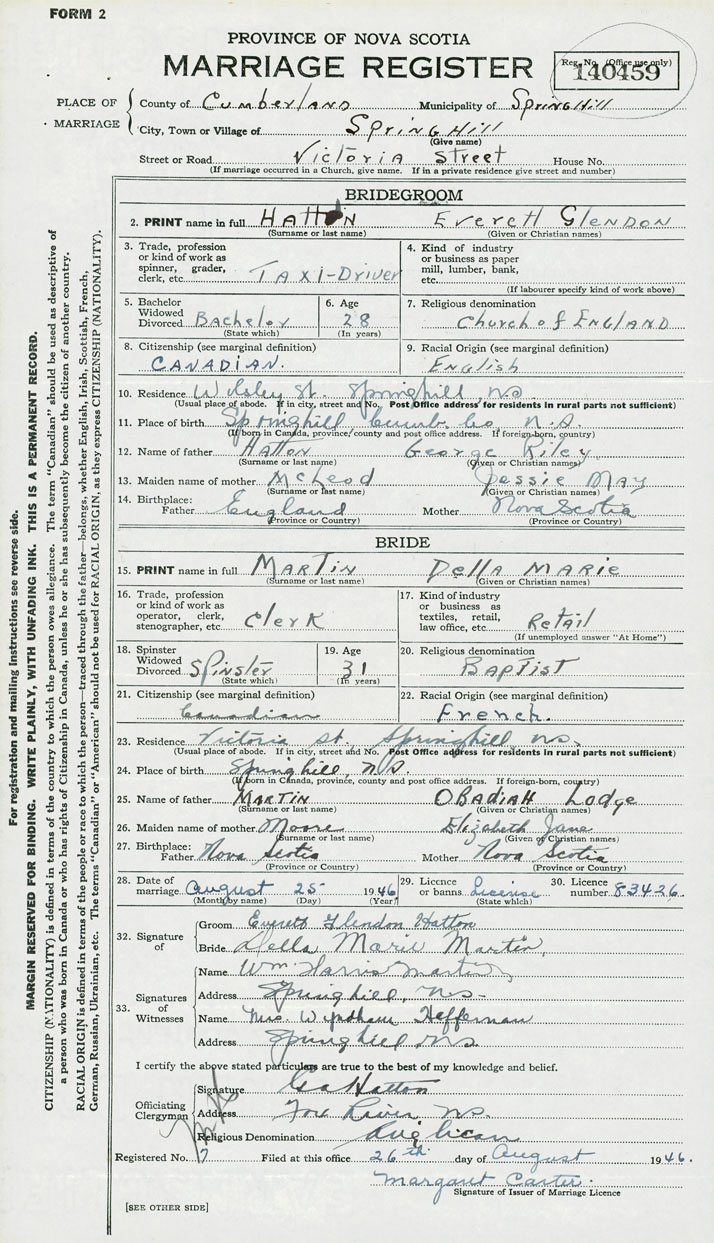 FORM 2
PROVINCE OF NOVA SCOTIA
MARRIAGE REGISTER
Reg. No. (Office use only)
140459
PLACE OF MARRIAGE
County of Cumberland Municipality of Spring Hill
City, Town or Village of Spring Hill
(Give name)
Street or Road Victoria Street House No.
(If marriage occurred in a Church, give name. If in a private residence give street and number)
BRIDEGROOM
2. PRINT name in full HATTON Everett Glendon
(Surname or last name) (Given or Christian names)
3. Trade, profession or kind of work as spinner, grader, clerk, etc. Taxi-Driver
4. Kind of industry or business as paper mill, lumber, bank, etc.
(If labourer specify kind of work above)
5. Bachelor Widowed Divorced Bachelor
(State which)
6. Age 28
(In years)
7. Religious denomination Church of England
8. Citizenship (see marginal definition) CANADIAN.
9. Racial Origin (see marginal definition) English
10. Residence Wilsley St. Springhill, NS
(Usual place of abode. If in city, street and No. Post Office address for residents in rural parts not sufficient)
11. Place of birth Springhill, Cumb. Co, N.S.
(If born in Canada, province, county and post office address. If foreign-born, country)
12. Name of father Hatton George Riley
(Surname or last name) (Given or Christian names)
13. Maiden name of mother McLeod Jessie May
(Surname or last name) (Given or Christian names)
14. Birthplace: Father England Mother Nova Scotia
(Province or Country) (Province or Country)
BRIDE
15. PRINT name in full MARTIN Della MARIE
(Surname or last name) (Given or Christian names)
16. Trade, profession or kind of work as operator, clerk, stenographer, etc. Clerk
17. Kind of industry or business as textiles, retail, law office, etc. Retail
(If unemployed answer "At Home")
18. Spinster Widowed Divorced Spinster
(State which)
19. Age 31
(In years)
20. Religious denomination BAPTIST
21. Citizenship (see marginal definition) Canadian
22. Racial Origin (see marginal definition) French.
23. Residence Victoria St. Springhill, NS.
(Usual place of abode. If in city, street and No. Post Office address for residents in rural parts not sufficient)
24. Place of birth Springhill, N.S.
(If born in Canada, province, county and post office address. If foreign-born, country)
25. Name of father MARTIN OBADIAH Lodge
(Surname or last name) (Given or Christian names)
26. Maiden name of mother Moore Elizabeth Jane
(Surname or last name) (Given or Christian names)
27. Birthplace: Father Nova Scotia Mother Nova Scotia
(Province or Country) (Province or Country)
28. Date of marriage August 25 1946
(Month by name) (Day) (Year)
29. Licence or banns License
(State which)
30. Licence number 83426.
32. Signature of
Groom Everett Glendon Hatton
Bride Della Marie Martin,
33. Signatures of Witnesses
Name Wm Harris Martin
Address Springhill, NS-
Name Mrs. Wyndham Heffernan
Address Springhill NS.
I certify the above stated particulars are true to the best of my knowledge and belief.
Officiating Clergyman
Signature Geo Hatton
Address Fox River NS.
Religious Denomination Anglican
Registered No. 7 Filed at this office 26th day of August 1946.
Margaret Carter.
Signature of Issuer of Marriage Licence
[SEE OTHER SIDE]
For registration and mailing instructions see reverse side.
MARGIN RESERVED FOR BINDING. WRITE PLAINLY, WITH UNFADING INK. THIS IS A PERMANENT RECORD.
CITIZENSHIP (NATIONALITY) is defined in terms of the country to which the person owes allegiance. The term "Canadian" should be used as descriptive of
a person who was born in Canada or who has rights of Citizenship in Canada, unless he or she has subsequently become the citizen of another country.
RACIAL ORIGIN is defined in terms of the people or race to which the person—traced through the father—belongs, whether English, Irish, Scottish, French,
German, Russian, Ukrainian, etc. The terms "Canadian" or "American" should not be used for RACIAL ORIGIN, as they express CITIZENSHIP (NATIONALITY).